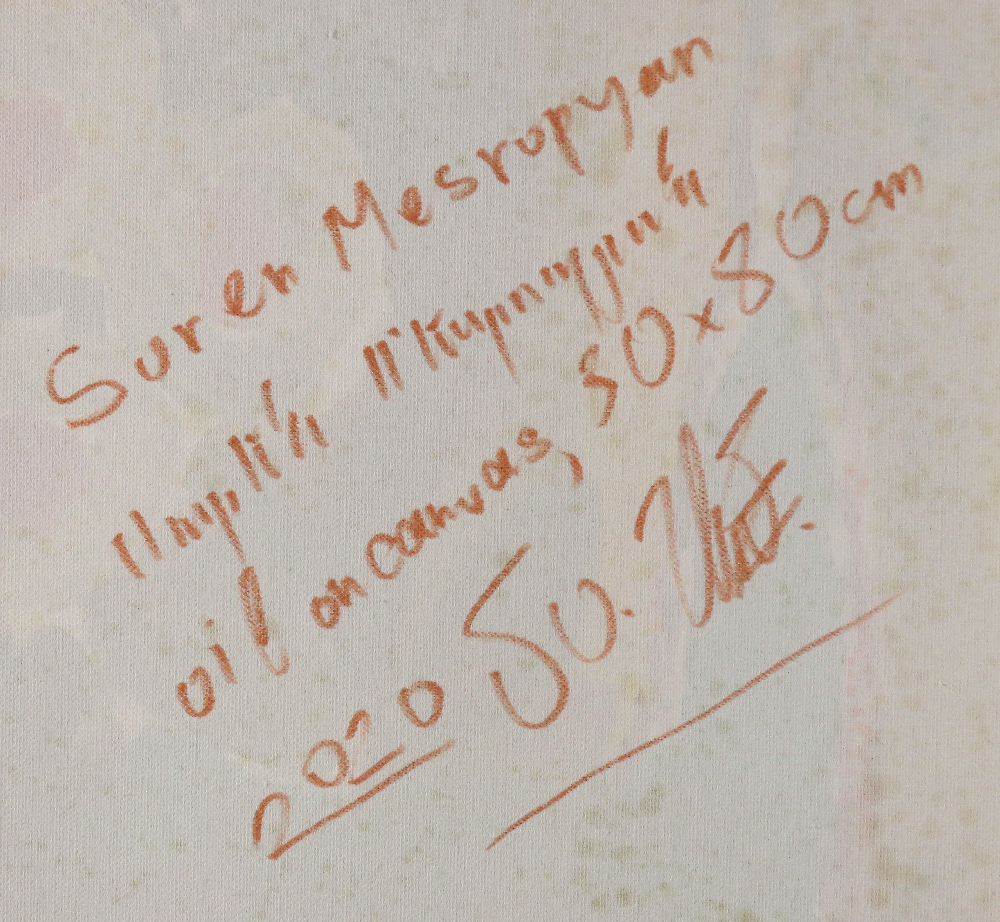 Suren Mesropyan
Սուրեն Մեսրոպյան
oil on canvas, 50x80cm
2020